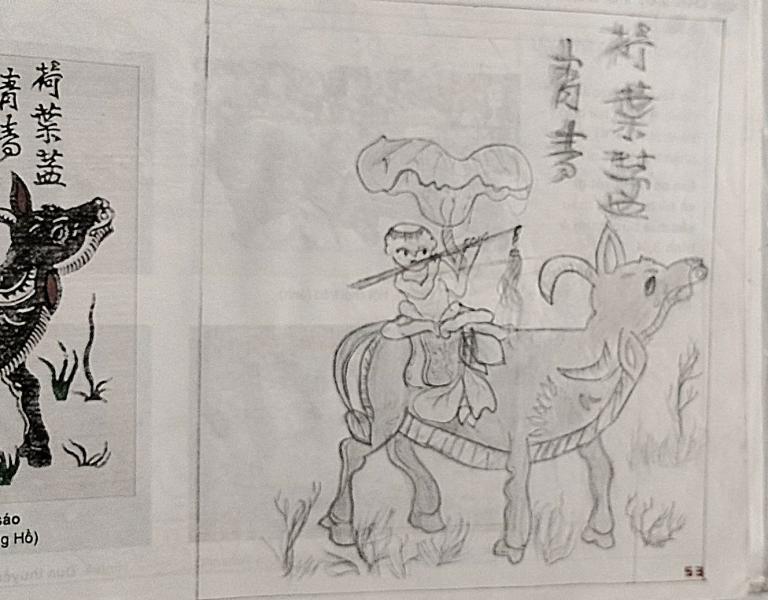 荷葉蓋
青青
sáo
g Hồ)
荷葉蓋
青青
53